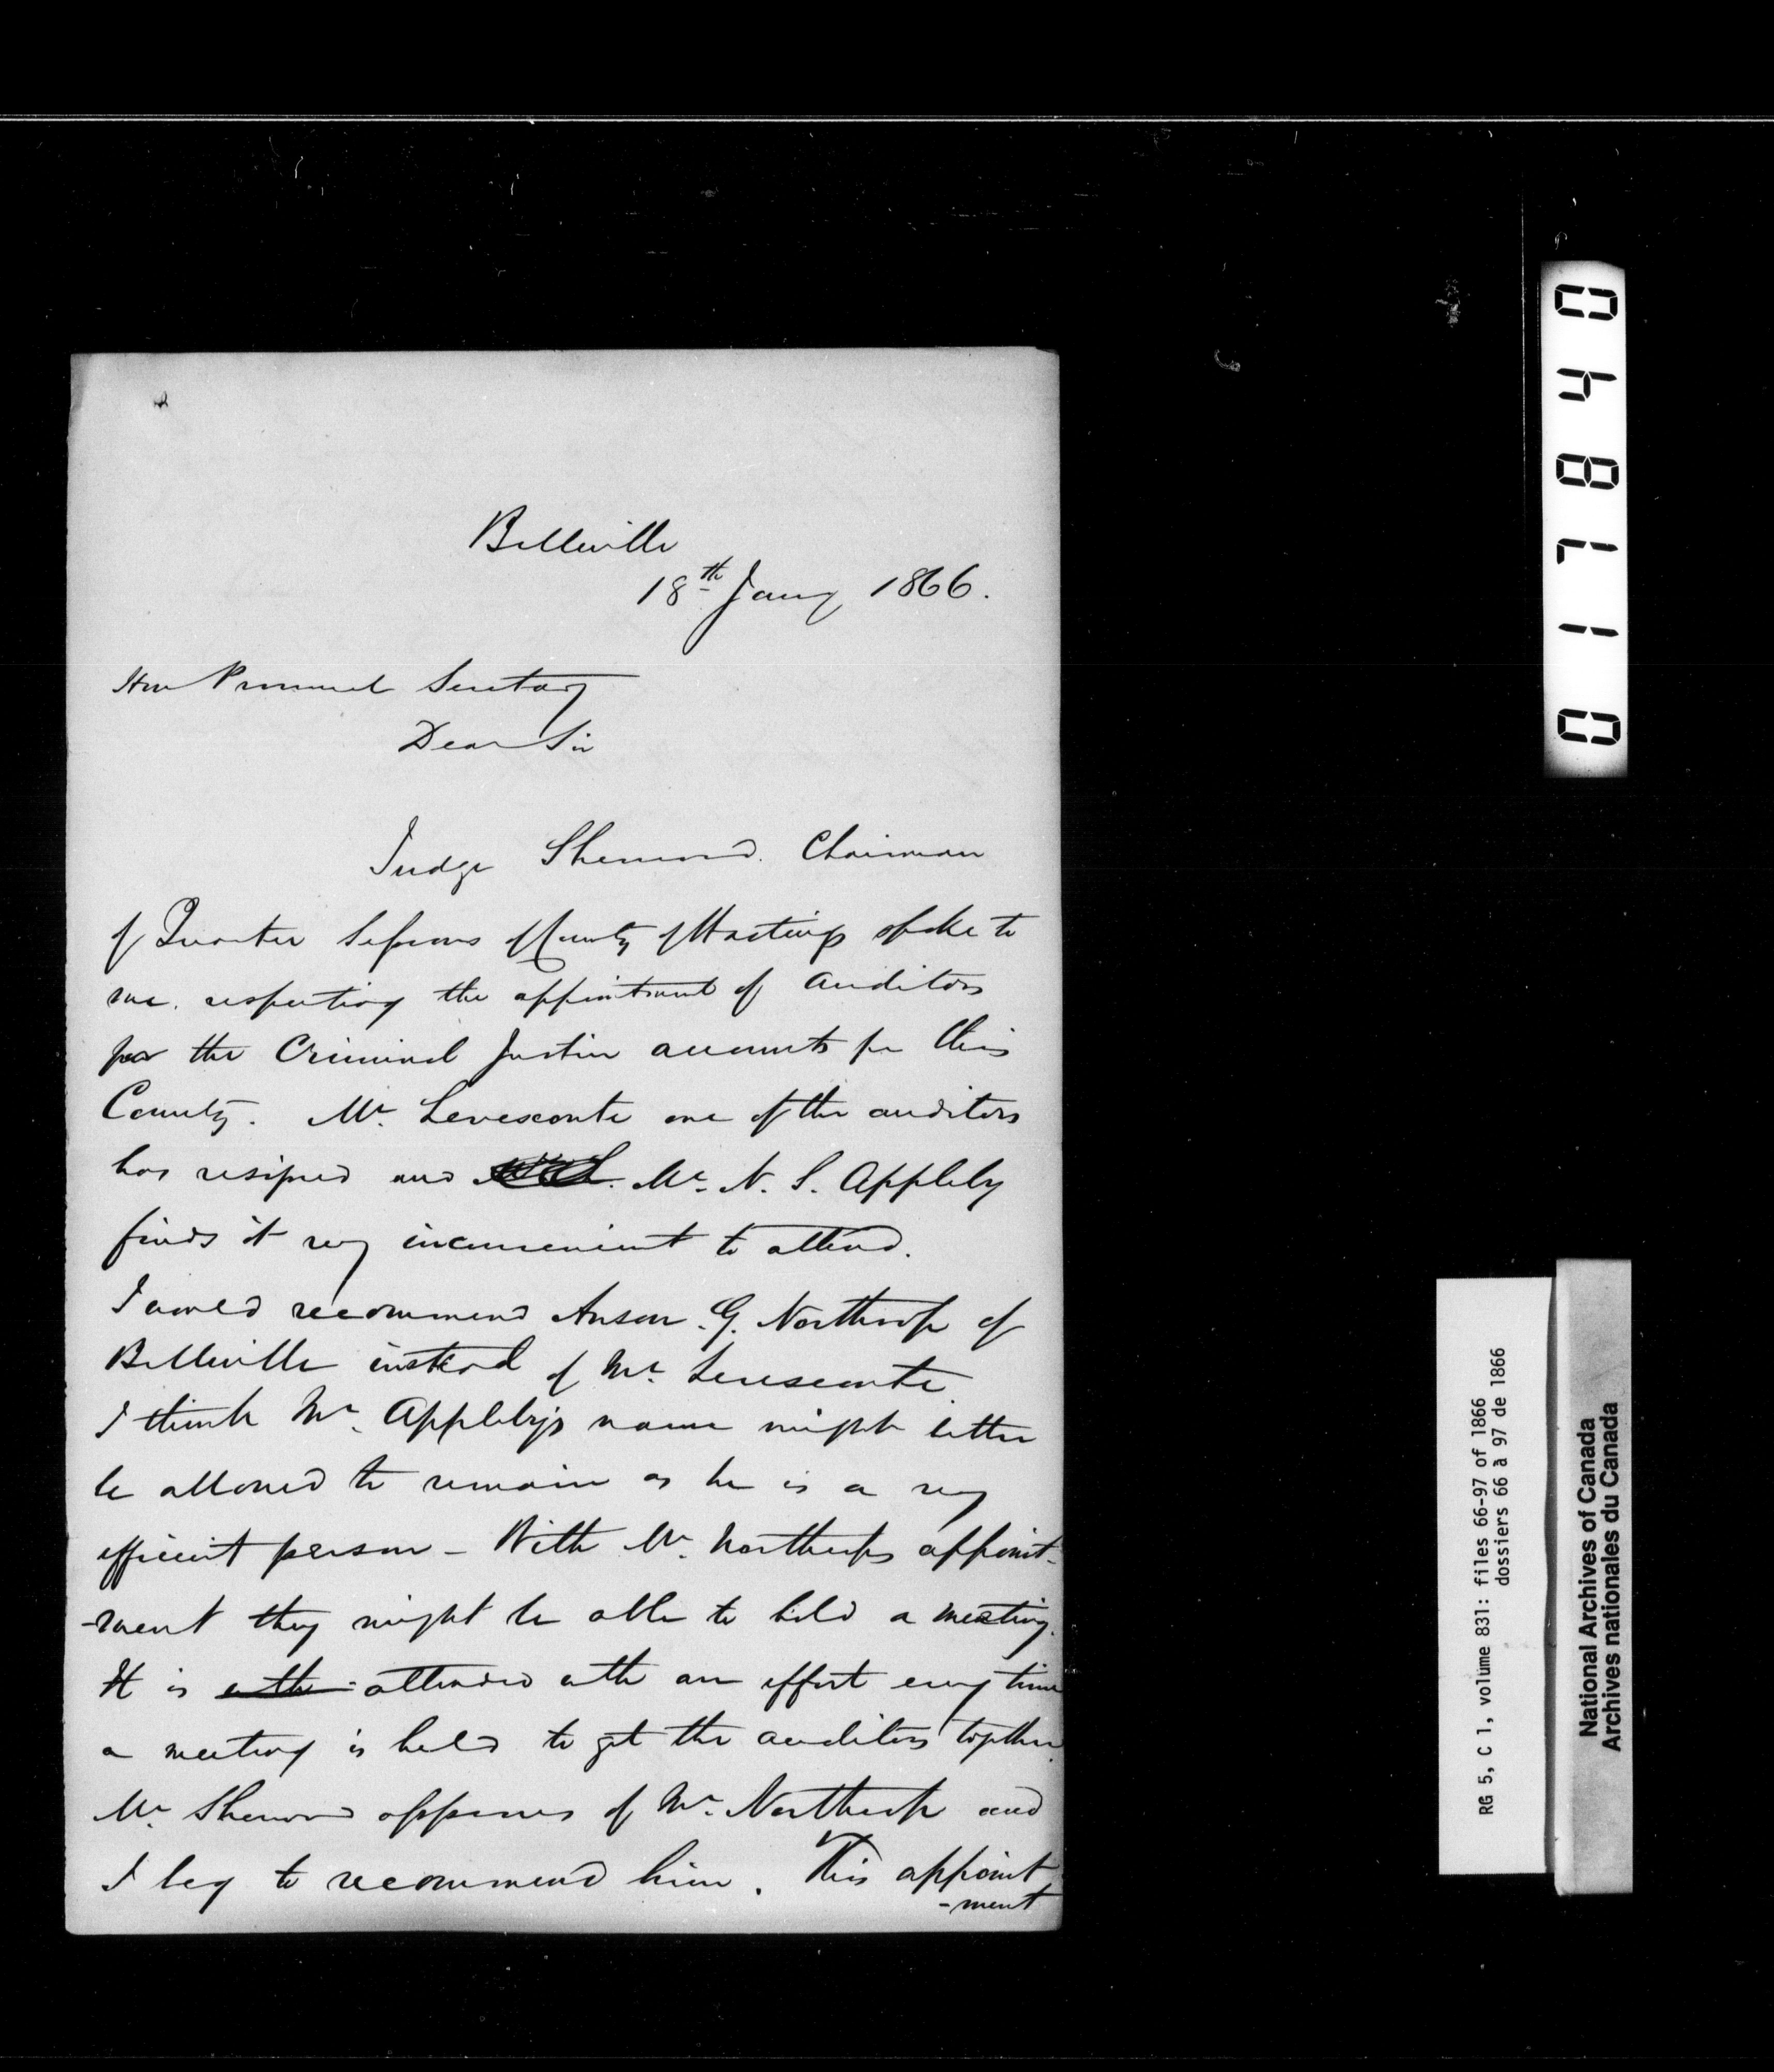 Belleville
18th Jany 1866.
Hon Provincial Secretary
Dear Sir
Judge Sherwood. Chairman
of Quarter Sessions of County of Hastings spoke to
me. respecting the appointment of auditors
for the Criminal Justice accounts for this
County. Mr. Levesconte one of the auditors
has resigned and Mr. N. S. Appleby
finds it very inconvenient to attend.
I would recommend Anson. G. Northrop of
Belleville instead of Mr. Levesconte.
I think Mr. Appleby's name might better
be allowed to remain as he is a very
efficient person - With Mr. Northrops appoint-
-ment they might be able to hold a meeting.
It is with attended with an effort every time
a meeting is held to get the auditors together.
Mr. Sherwood approves of Mr. Northrop and
I beg to recommend him. This appoint
-ment
0 1 7 8 4 0
RG 5, C 1, volume 831: files 66-97 of 1866
dossiers 66 à 97 de 1866
National Archives of Canada
Archives nationales du Canada